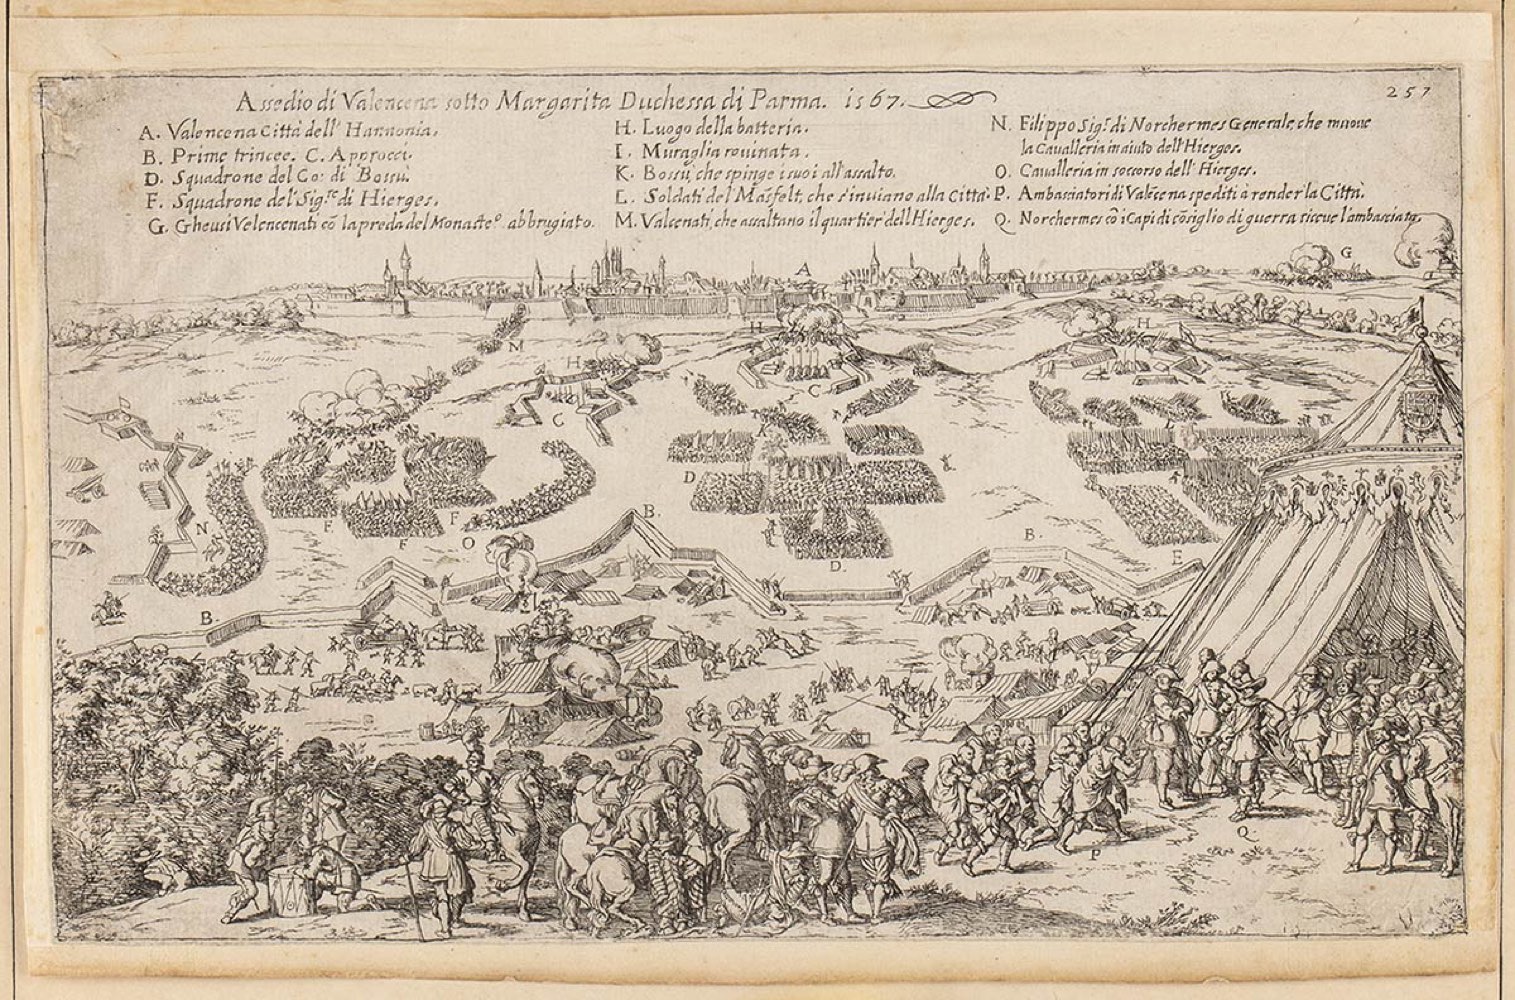 Assedio di Valencena sotto Margarita Duchessa di Parma. 1567.
257
A. Valencena Città dell' Hannonia.
B. Prime trincee. C. Approcci.
D. Squadrone del Co: di Bossù.
F. Squadrone del Sig.re di Hierges.
G. Gheusi Velencenati cō la preda del Monaste.o abbrugiato.
H. Luogo della batteria.
I. Muraglia rouinata.
K. Bossù, che spinge i suoi all'assalto.
L. Soldati del Māsfelt, che s'inuiano alla Città.
M. Valcenati, che assaltano il quartier dell Hierges.
N. Filippo Sig.r di Norchermes Generale, che muoue
la Caualleria in aiuto dell'Hierges.
O. Caualleria in soccorso dell'Hierges.
P. Ambasciatori di Valēcena spediti à render la Città.
Q. Norchermes cō i Capi di cōsiglio di guerra riceue l'ambasciata.
A
G
H
H
M
H
C
C
L
D
N
F
F
F
O
B.
B.
D.
E
B
P
Q